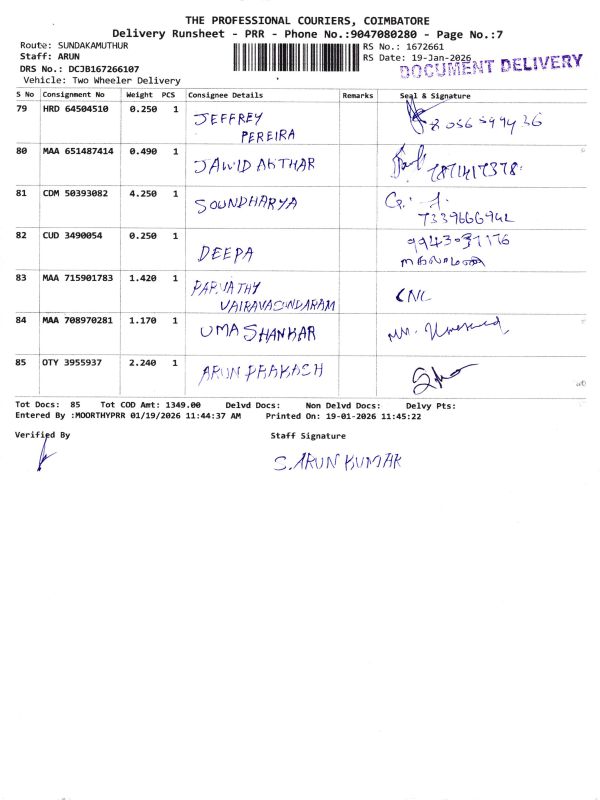 THE PROFESSIONAL COURIERS, COIMBATORE
Delivery Runsheet - PRR - Phone No.:9047080280 - Page No.:7
Route: SUNDAKAMUTHUR RS No.: 1672661
Staff: ARUN RS Date: 19-Jan-2026
DRS No.: DCJB167266107 DOCUMENT DELIVERY
Vehicle: Two Wheeler Delivery
S No Consignment No Weight PCS Consignee Details Remarks Seal & Signature
79 HRD 64504510 0.250 1 JEFFREY
PEREIRA
80 MAA 651487414 0.490 1 JAWID AKTHAR 7871417378
81 CDM 50393082 4.250 1 SOUNDHARYA
82 CUD 3490054 0.250 1 DEEPA
83 MAA 715901783 1.420 1 PARVATHY CNC
VAIRAVASUNDARAM
84 MAA 708970281 1.170 1 UMA SHANKAR
85 OTY 3955937 2.240 1 ARUN PRAKASH
Tot Docs: 85 Tot COD Amt: 1349.00 Delvd Docs: Non Delvd Docs: Delvy Pts:
Entered By :MOORTHYPRR 01/19/2026 11:44:37 AM Printed On: 19-01-2026 11:45:22
Verified By Staff Signature
S. ARUN KUMAR